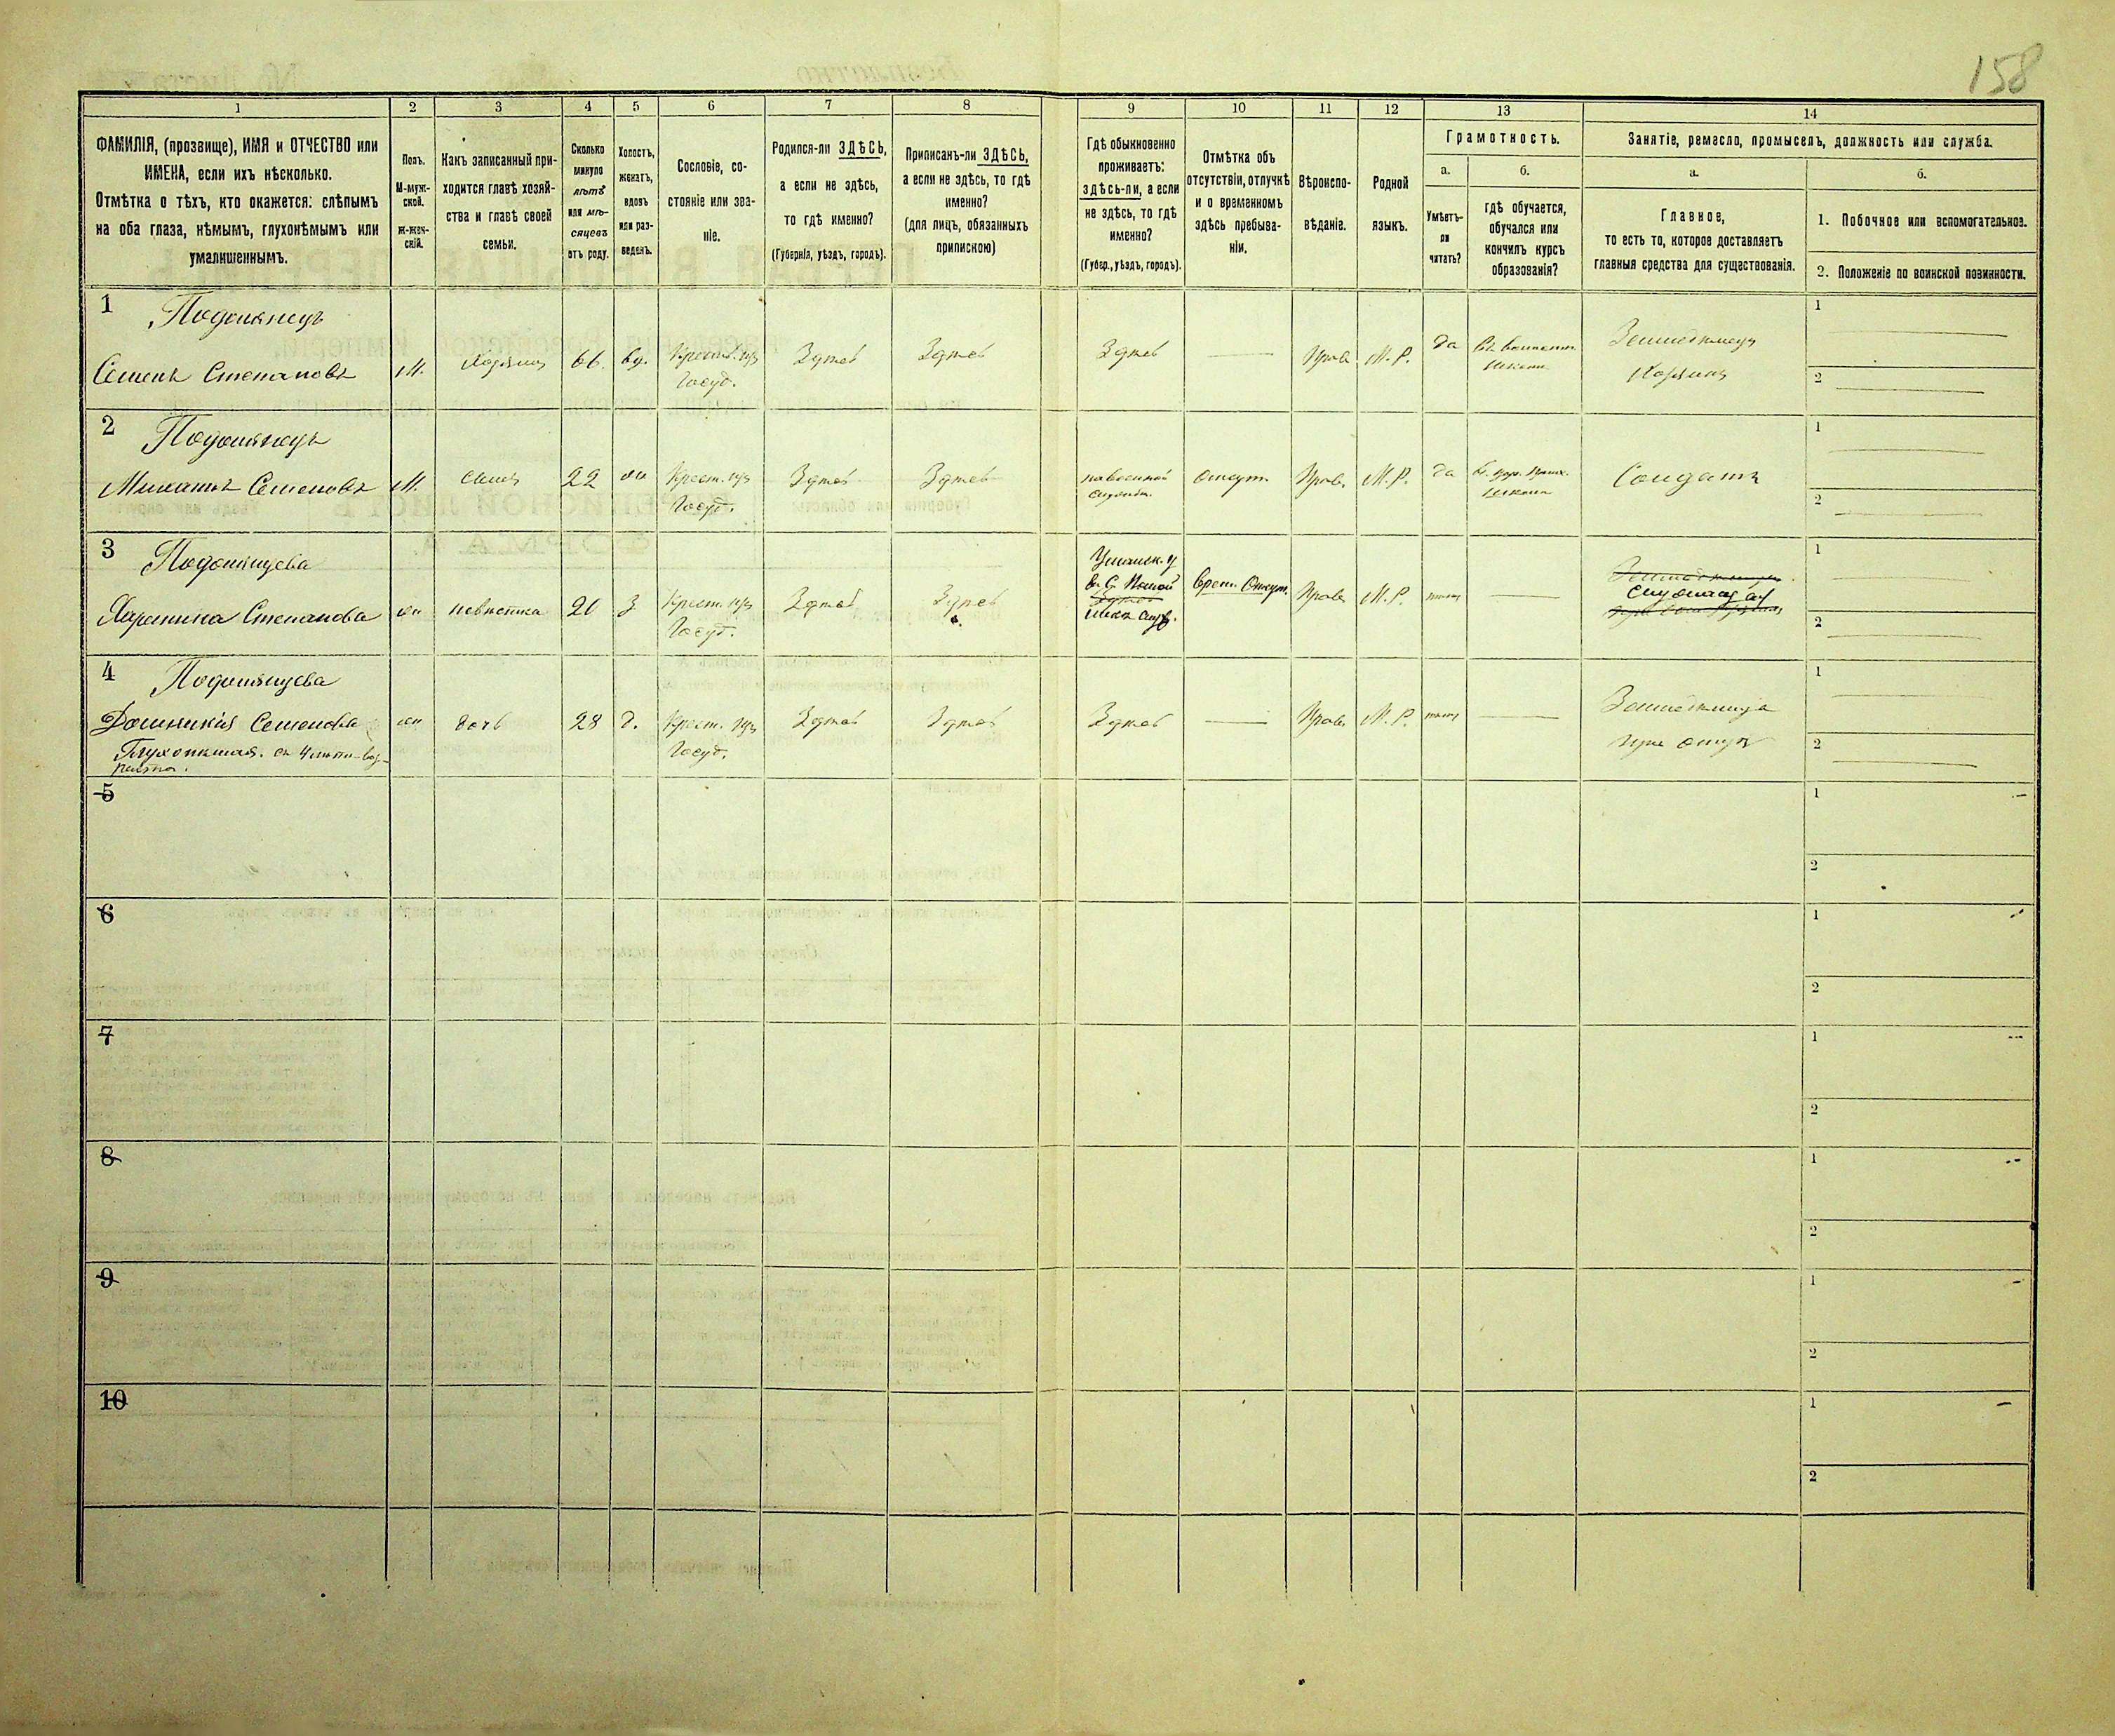 158
1
2
3
4
5
6
7
8
9
10
11
12
13
14
ФАМИЛІЯ, (прозвище), ИМЯ и ОТЧЕСТВО или
ИМЕНА, если ихъ нѣсколько.
Отмѣтка о тѣхъ, кто окажется: слѣпымъ
на оба глаза, нѣмымъ, глухонѣмымъ или
умалишеннымъ.
Полъ.
М-муж-
ской.
Ж-жен-
скій.
Какъ записанный при-
ходится главѣ хозяй-
ства и главѣ своей
семьи.
Сколько
минуло
лѣтъ
или мѣ-
сяцевъ
отъ роду.
Холостъ,
женатъ,
вдовъ
или раз-
веденъ.
Сословіе, со-
стояніе или зва-
ніе.
Родился-ли ЗДѢСЬ,
а если не здѣсь,
то гдѣ именно?
(Губернія, уѣздъ, городъ).
Приписанъ-ли ЗДѢСЬ,
а если не здѣсь, то гдѣ
именно?
(для лицъ, обязанныхъ
припискою)
Гдѣ обыкновенно
проживаетъ:
здѣсь-ли, а если
не здѣсь, то гдѣ
именно?
(Губер., уѣздъ, городъ).
Отмѣтка объ
отсутствіи, отлучкѣ
и о временномъ
здѣсь пребыва-
ніи.
Вѣроиспо-
вѣданіе.
Родной
языкъ.
Грамотность.
а.
б.
Умѣетъ-
ли
читать?
гдѣ обучается,
обучался или
кончилъ курсъ
образованія?
Занятіе, ремесло, промыселъ, должность или служба.
а.
б.
Главное,
то есть то, которое доставляетъ
главныя средства для существованія.
1. Побочное или вспомогательное.
2. Положеніе по воинской повинности.
1
Подолянецъ
Семенъ Степановъ
М.
Хозяинъ
66.
вд.
Крест. изъ
Госуд.
Здѣсь
Здѣсь
Здѣсь
Прав.
М. Р.
да
Земледѣлецъ
Хозяинъ
1
2
2
Подолянецъ
Михаилъ Семеновъ
М.
сынъ
22
Крест. изъ
Госуд.
Здѣсь
Здѣсь
на военной
службѣ.
отсут.
Прав.
М. Р.
да
Солдатъ
1
2
3
Подолянцева
Харитина Степанова
невѣстка
20
з
Крест. изъ
Госуд.
Здѣсь
Здѣсь
Врем. Отсут.
Прав.
М. Р.
нѣтъ
1
2
4
Подолянцева
Домникія Семенова
Глухонѣмая. съ
дочь
28
д.
Крест. изъ
Госуд.
Здѣсь
Здѣсь
Здѣсь
Прав.
М. Р.
нѣтъ
Земледѣлица
при отцѣ
1
2
5
1
2
6
1
2
7
1
2
8
1
2
9
1
2
10
1
2